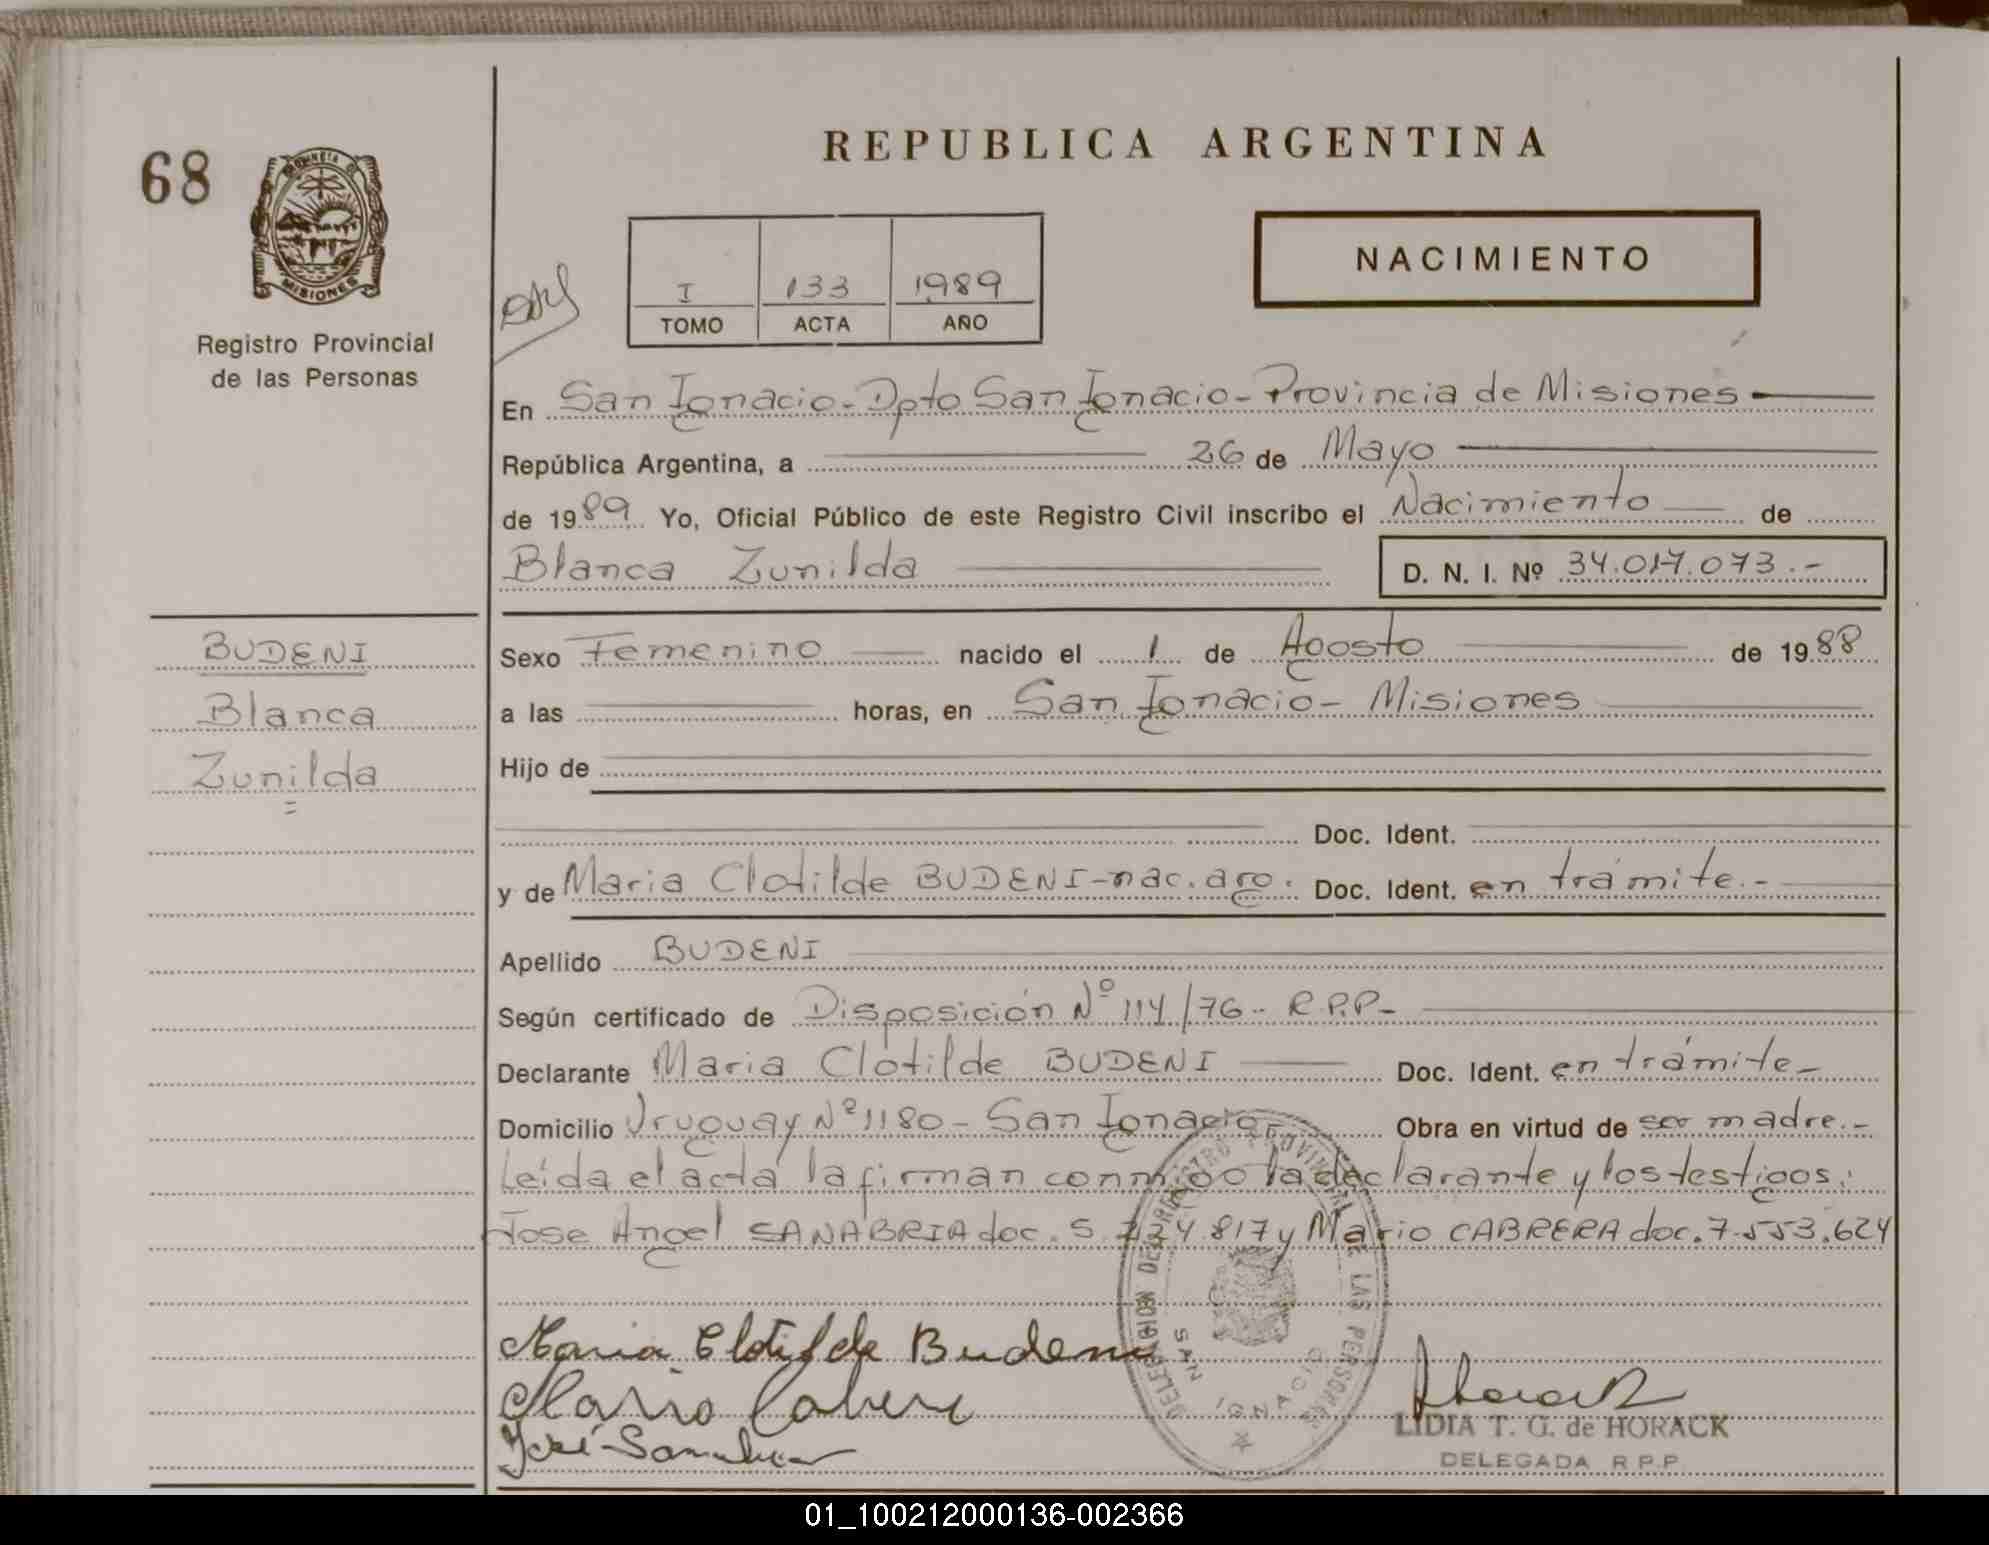 68
PROVINCIA DE
MISIONES
Registro Provincial
de las Personas
REPUBLICA ARGENTINA
I 133 1989
TOMO ACTA AÑO
NACIMIENTO
En San Ignacio - Dpto San Ignacio - Provincia de Misiones
República Argentina, a 26 de Mayo
de 1989 Yo, Oficial Público de este Registro Civil inscribo el Nacimiento de
Blanca Zunilda D. N. I. Nº 34.017.073.-
BUDENI
Blanca
Zunilda
Sexo Femenino nacido el 1 de Agosto de 1988
a las horas, en San Ignacio - Misiones
Hijo de
Doc. Ident.
y de Maria Clotilde BUDENI - nac. arg. Doc. Ident. en trámite.-
Apellido BUDENI
Según certificado de Disposición Nº 114/76 - R.P.P.-
Declarante Maria Clotilde BUDENI Doc. Ident. en trámite-
Domicilio Uruguay Nº 1180 - San Ignacio- Obra en virtud de ser madre.-
Leída el acta la firman conmigo la declarante y los testigos:
Jose Angel SANABRIA doc. 5. 817 y Mario CABRERA doc. 7.553.624
Maria Clotilde Budeni
Mario Cabrera
José Sanabria
DELEGACION DEL REGISTRO PROVINCIAL DE LAS PERSONAS
SAN IGNACIO
LIDIA T. G. de HORACK
DELEGADA R.P.P.
01_100212000136-002366